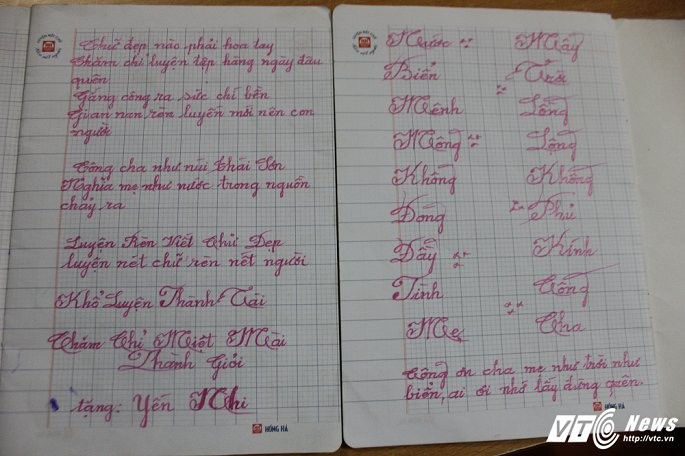 Chữ đẹp nào phải hoa tay
Chăm chỉ luyện tập hàng ngày đâu
quên
Gắng công ra sức chí bền
Gian nan rèn luyện mới nên con
người
Công cha như núi Thái Sơn
Nghĩa mẹ như nước trong nguồn
chảy ra
Luyện Rèn Viết Chữ Đẹp
luyện nét chữ rèn nết người
Khổ Luyện Thành Tài
Chăm Chỉ Miệt Mài
Thành Giỏi
tặng: Yến Nhi
HỒNG HÀ
Nước Mây
Biển Trời
Mênh Lồng
Mông Lộng
Không Khống
Đong Phủ
Đầy Kính
Tình Công
Mẹ Cha
Công ơn cha mẹ như trời như
biển, ai ơi nhớ lấy đừng quên.
HỒNG HÀ
VTC News
http://vtc.vn